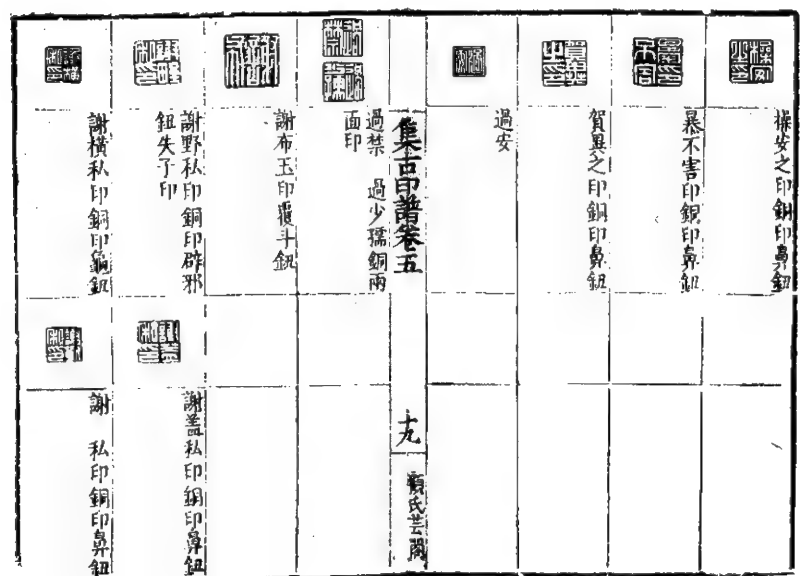 操安之印銅印鼻鈕
暴不害印銅印鼻鈕
賀異之印銅印鼻鈕
過安
集古印譜卷五
十九
顧氏芸閣
過禁 過少孺銅兩
面印
謝布玉印覆斗鈕
謝野私印銅印辟邪
鈕失了印
謝蓋私印銅印鼻鈕
謝橫私印銅印龜鈕
謝 私印銅印鼻鈕